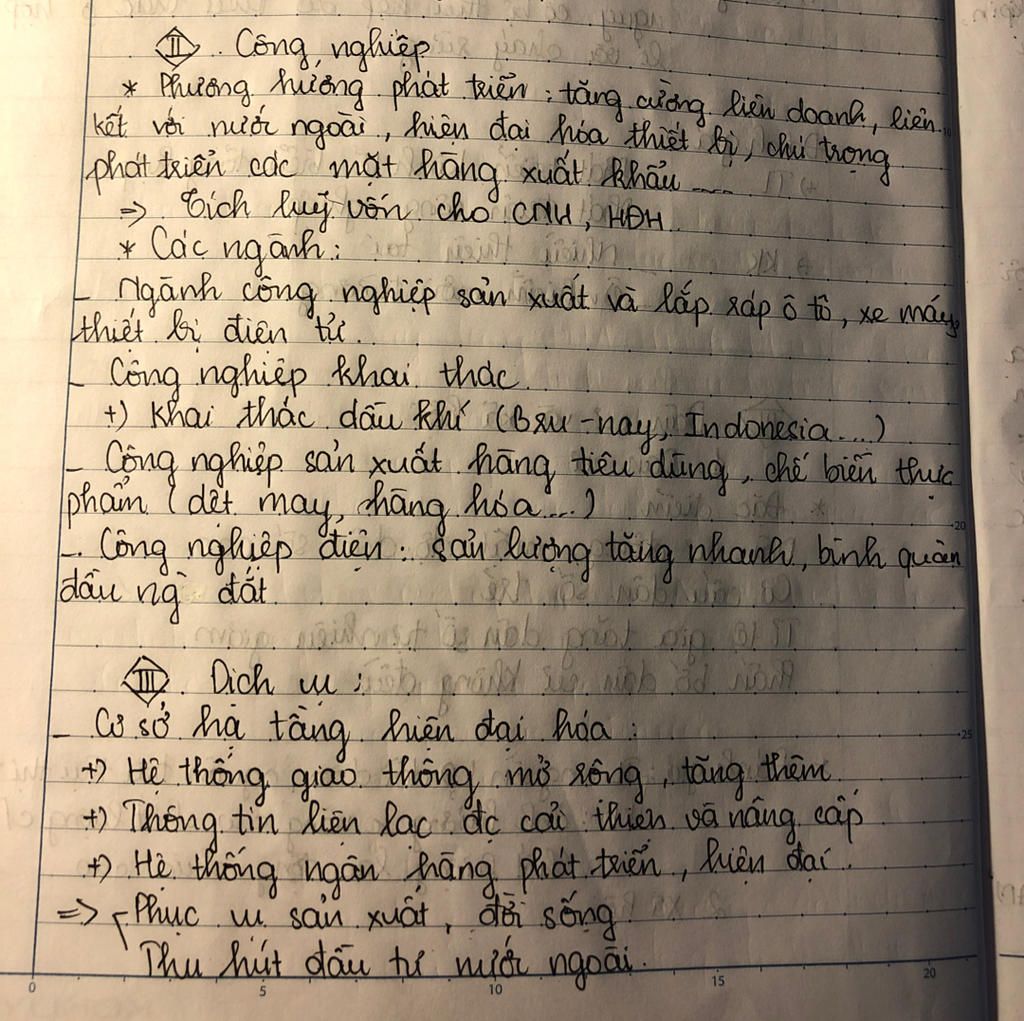 II. Công nghiệp
* Phương hướng phát triển : tăng cường liên doanh, liên
kết với nước ngoài, hiện đại hóa thiết bị, chú trọng
phát triển các mặt hàng xuất khẩu ....
=> Tích luỹ vốn cho CNH, HĐH
* Các ngành :
- Ngành công nghiệp sản xuất và lắp ráp ô tô, xe máy,
thiết bị điện tử.
- Công nghiệp khai thác
+) Khai thác dầu khí (Bru-nay, Indonesia....)
- Công nghiệp sản xuất hàng tiêu dùng, chế biến thực
phẩm (dệt may, hàng hóa....)
- Công nghiệp điện : sản lượng tăng nhanh, bình quân
đầu ng đắt
III. Dịch vụ :
- Cơ sở hạ tầng hiện đại hóa :
+) Hệ thống giao thông mở rộng, tăng thêm
+) Thông tin liên lạc đc cải thiện và nâng cấp
+) Hệ thống ngân hàng phát triển, hiện đại.
=> Phục vụ sản xuất, đời sống
Thu hút đầu tư nước ngoài.
0 5 10 15 20
20
25